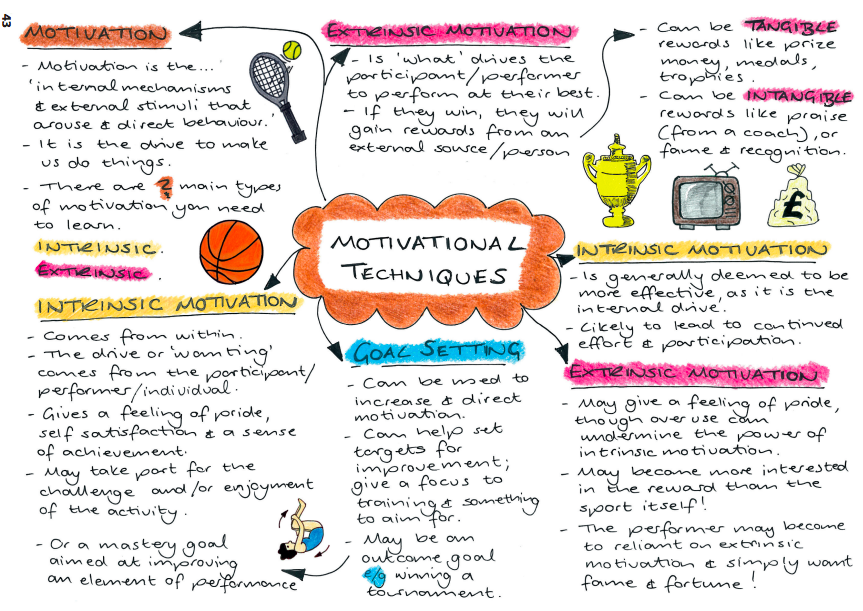 43
MOTIVATION
- Motivation is the...
'internal mechanisms
& external stimuli that
arouse & direct behaviour.'
- It is the drive to make
us do things.
- There are 2 main types
of motivation you need
to learn.
INTRINSIC.
EXTRINSIC.
EXTRINSIC MOTIVATION
- Is 'what' drives the
participant/performer
to perform at their best.
- If they win, they will
gain rewards from an
external source/person
- Can be TANGIBLE
rewards like prize
money, medals,
trophies.
- Can be INTANGIBLE
rewards like praise
(from a coach), or
fame & recognition.
£
MOTIVATIONAL
TECHNIQUES
INTRINSIC MOTIVATION
- Comes from within.
- The drive or 'wanting'
comes from the participant/
performer/individual.
- Gives a feeling of pride,
self satisfaction & a sense
of achievement.
- May take part for the
challenge and/or enjoyment
of the activity.
GOAL SETTING
- Can be used to
increase & direct
motivation.
- Can help set
targets for
improvement;
give a focus to
training & something
to aim for.
- May be an
outcome goal
e/g winning a
tournament.
- Or a mastery goal
aimed at improving
an element of performance
INTRINSIC MOTIVATION
- Is generally deemed to be
more effective, as it is the
internal drive.
- Likely to lead to continued
effort & participation.
EXTRINSIC MOTIVATION
- May give a feeling of pride,
though over use can
undermine the power of
intrinsic motivation.
- May become more interested
in the reward than the
sport itself!
- The performer may become
to reliant on extrinsic
motivation & simply want
fame & fortune!